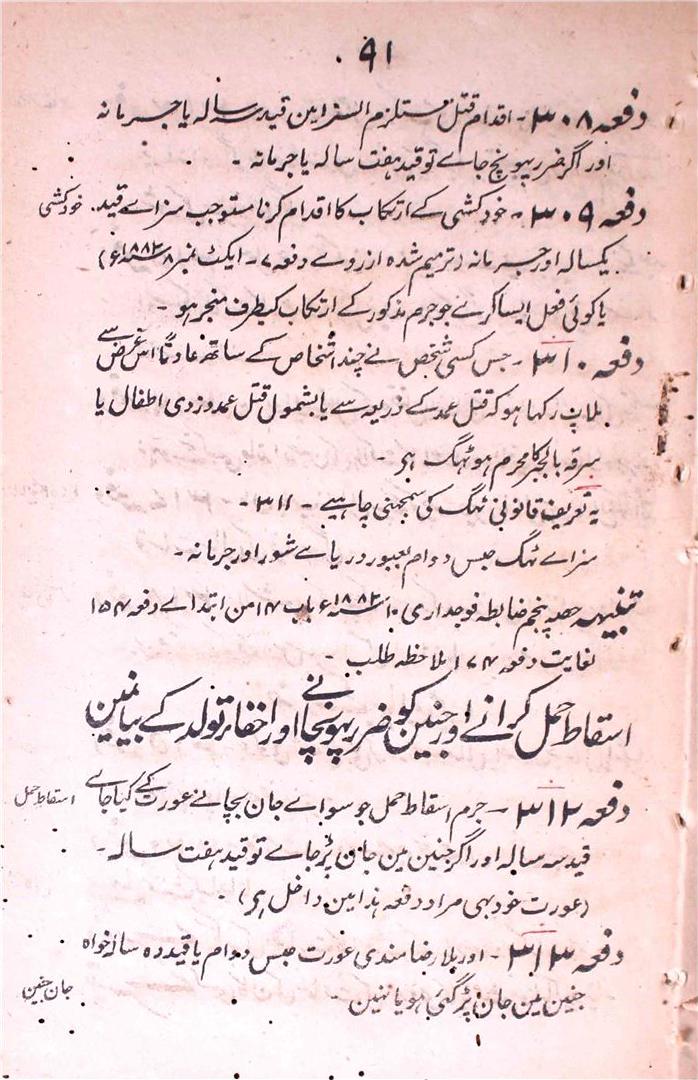 ۹۱
دفعہ ۳۰۸ - اقدام قتل مستلزم السزا مین قید سہ سالہ یا جرمانہ
اور اگر ضرر پہونچ جاے تو قید ہفت سالہ یا جرمانہ -
دفعہ ۳۰۹ - خودکشی کے ارتکاب کا اقدام کرنا مستوجب سزاے قید
خودکشی
یکسالہ اور جرمانہ (ترمیم شدہ از روے دفعہ ۷ - ایکٹ نمبر ۸ ۱۸۸۲ء)
یا کوئی فعل ایسا کرے جو جرم مذکور کے ارتکاب کیطرف منجر ہو -
دفعہ ۳۱۰ - جس کسی شخص نے چند اشخاص کے ساتھ عادتاً اس غرض سے
ملاپ رکہا ہو کہ قتل عمد کے ذریعہ سے یا بشمول قتل عمد دزدی اطفال یا
سرقہ بالجبر کا مجرم ہو ٹہگ ہی -
یہ تعریف قانونی ٹہگ کی سمجہنی چاہیے - ۳۱۱ -
سزاے ٹہگ حبس دوام بعبور دریاے شور اور جرمانہ -
تنبیہہ حصہ پنجم ضابطہ فوجداری ۱۰ ۱۸۸۲ء باب ۱۴ من ابتداے دفعہ ۱۵۴
لغایت دفعہ ۱۷۴ ملاحظہ طلب -
اسقاط حمل کرانے اور جنین کو ضرر پہونچانے اور اخفاء تولد کے بیانمین
دفعہ ۳۱۲ - جرم اسقاط حمل جو سواے جان بچانے عورت کے کیا جاے
اسقاط حمل
قید سہ سالہ اور اگر جنین مین جان پڑ جاے تو قید ہفت سالہ -
(عورت خود بہی مراد دفعہ ہذا مین داخل ہی) -
دفعہ ۳۱۳ - اور بلا رضامندی عورت حبس دوام یا قید دہ سالہ خواہ
جنین مین جان پڑ گئی ہو یا نہین -
جان جنین